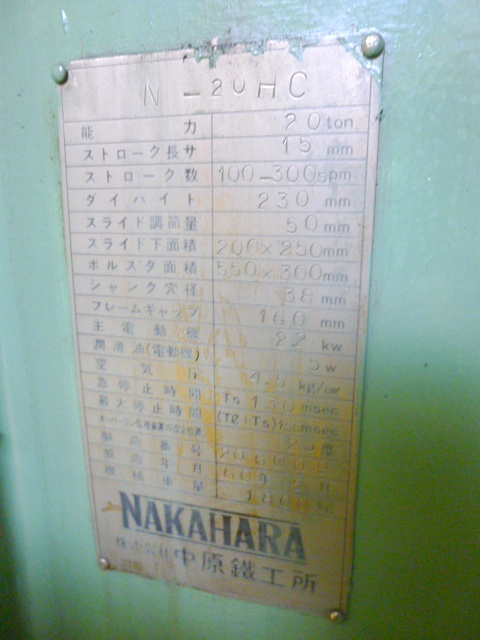 N-20HC
能力 20 ton
ストローク長サ 15 mm
ストローク数 100-300 spm
ダイハイト 230 mm
スライド調節量 50 mm
スライド下面積 200×250 mm
ボルスタ面積 550×300 mm
シャンク穴径 38 mm
フレームギャップ 160 mm
主電動機 kw
潤滑油(電動機) w
空気圧 4.5 kg/cm²
急停止時間 Ts msec
最大停止時間 (Tℓ+Ts) msec
オーバーラン監視装置の設定位置 度
製造番号
製造年月 60年 月
機械重量 kg
NAKAHARA
株式会社 中原鐵工所